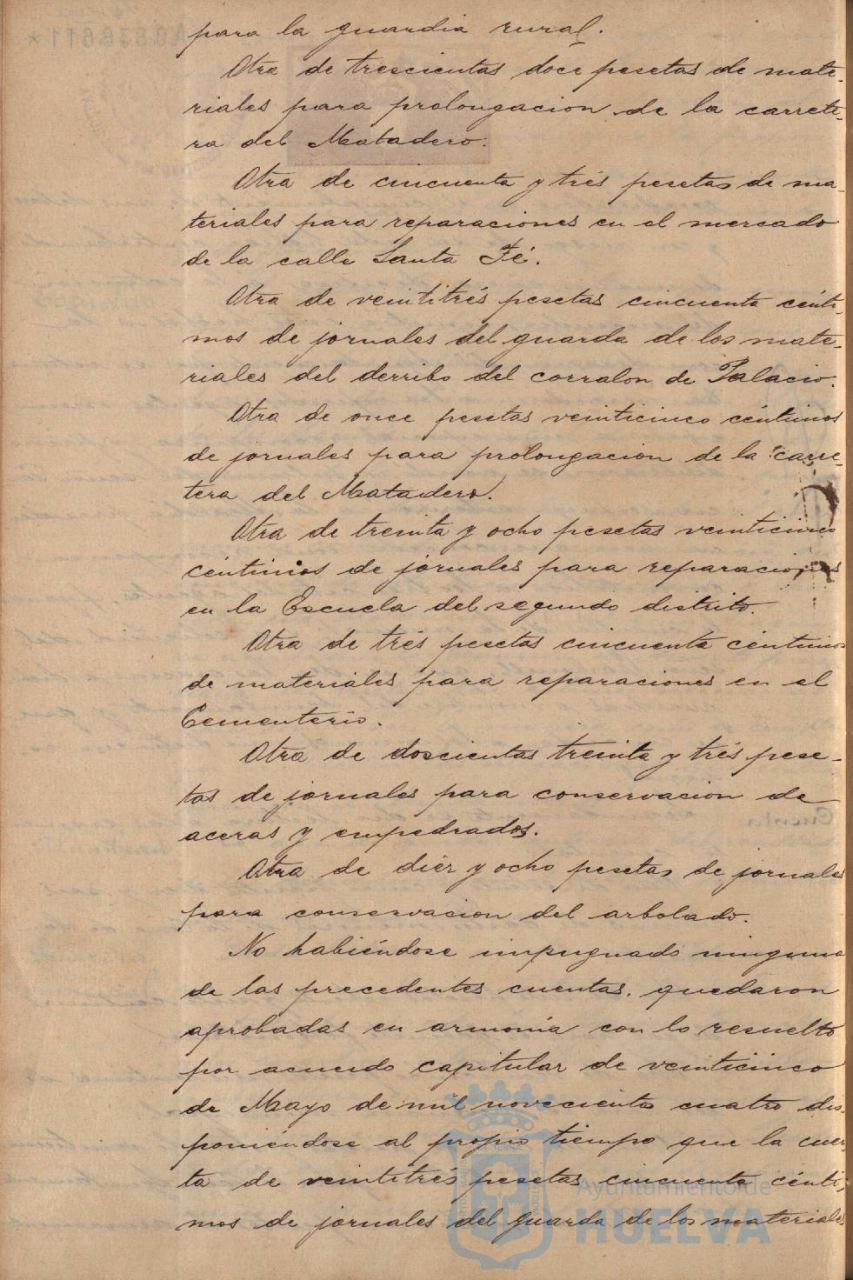 para la guardia rural.
Otra de trescientas doce pesetas de mate-
riales para prolongacion de la carrete-
ra del Matadero.
Otra de cincuenta y trés pesetas de ma-
teriales para reparaciones en el mercado
de la calle Santa Fé.
Otra de veintitrés pesetas cincuenta cénti-
mos de jornales del guarda de los mate-
riales del derribo del corralon de Palacio.
Otra de once pesetas veinticinco céntimos
de jornales para prolongacion de la carre-
tera del Matadero.
Otra de treinta y ocho pesetas veinticinco
céntimos de jornales para reparaciones
en la Escuela del segundo distrito.
Otra de trés pesetas cincuenta céntimos
de materiales para reparaciones en el
Cementerio.
Otra de doscientas treinta y trés pese-
tas de jornales para conservacion de
aceras y empedrados.
Otra de diéz y ocho pesetas de jornales
para conservacion del arbolado.
No habiéndose impugnado ninguna
de las precedentes cuentas, quedaron
aprobadas en armonía con lo resuelto
por acuerdo capitular de veinticinco
de Mayo de mil novecientos cuatro dis-
poniéndose al propio tiempo que la cuen-
ta de veintitrés pesetas cincuenta cénti-
mos de jornales del guarda de los materiales
Ayuntamiento de
HUELVA